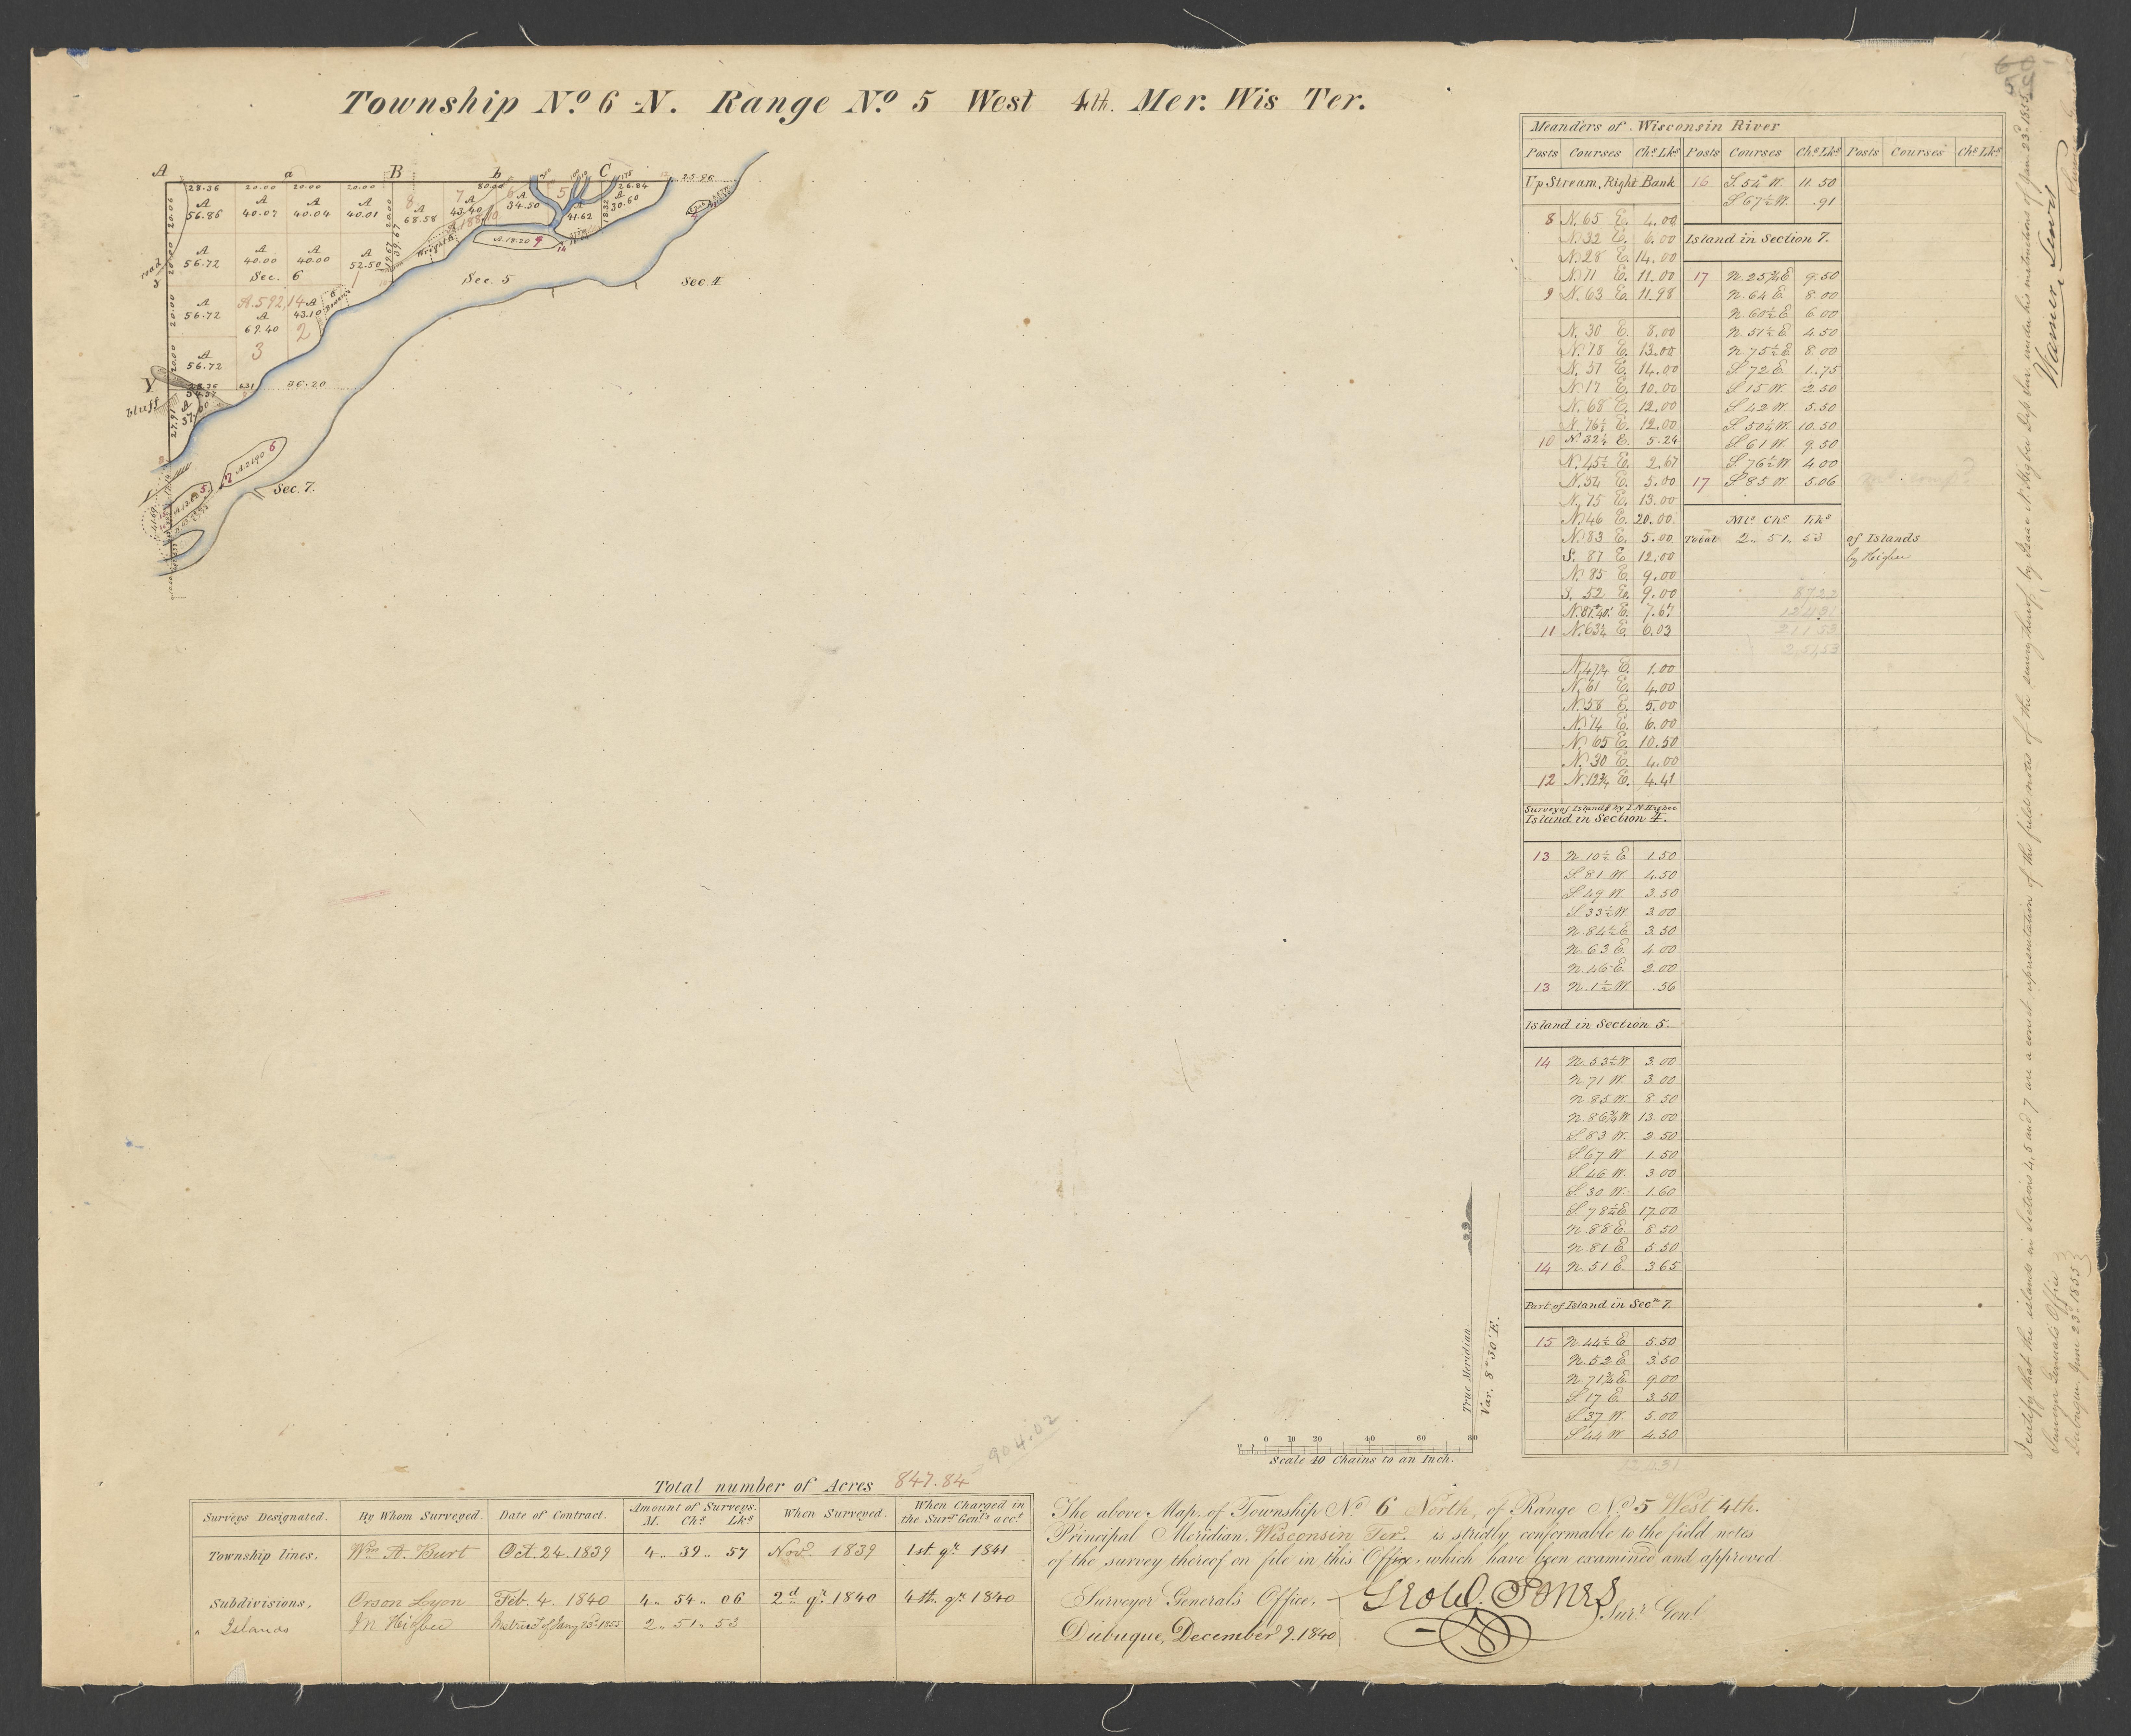 Township No. 6 N. Range No. 5 West 4th. Mer. Wis Ter.
A a B b C
28.36 20.00 20.00 20.00 80.00 26.84 25.96
A 56.86 A 40.07 A 40.04 A 40.01 8 A 68.58 7 A 43.40 A 34.50 5 A 41.62 A 30.60
20.06 20.00 18.32
A 56.72 A 40.00 A 40.00 A 52.50 1
Sec. 6 Sec. 5 Sec. 4
A. 18.20 9 14
road
20.00
A 56.72 A. 592,14 A 43.10
A 69.40 2
3
20.00
A 56.72
Y 28.36 6.31 36.20
bluff
27.91
A 21.90 6
17
Sec. 7.
5
Meanders of Wisconsin River
Posts Courses Chs Lks Posts Courses Chs Lks Posts Courses Chs Lks
Up Stream, Right Bank
8 N. 65 E. 4.00
N. 32 E. 6.00
N. 28 E. 14.00
N. 11 E. 11.00
9 N. 63 E. 11.98
N. 30 E. 8.00
N. 78 E. 13.00
N. 37 E. 14.00
N. 17 E. 10.00
N. 68 E. 12.00
N. 76½ E. 12.00
10 N. 32¼ E. 5.24
N. 45½ E. 2.67
N. 54 E. 5.00
N. 75 E. 13.00
N. 46 E. 20.00
N. 83 E. 5.00
S. 87 E. 12.00
N. 85 E. 9.00
S. 52 E. 9.00
N. 87°40' E. 7.67
11 N. 63¼ E. 6.03
N. 47¾ E. 1.00
N. 61 E. 4.00
N. 58 E. 5.00
N. 74 E. 6.00
N. 65 E. 10.50
N. 30 E. 4.00
12 N. 12¾ E. 4.41
Survey of Islands by I. N. Higbee
Island in Section 4.
13 N. 10½ E 1.50
S. 81 W. 4.50
S. 49 W. 3.50
S. 33½ W. 3.00
N. 84½ E 3.50
N. 63 E. 4.00
N. 46 E. 2.00
13 N. 1½ W. .56
Island in Section 5.
14 N. 53½ W. 3.00
N. 71 W. 3.00
N. 85 W. 8.50
N. 86¾ W. 13.00
S. 83 W. 2.50
S. 67 W. 1.50
S. 46 W. 3.00
S. 30 W. 1.60
S. 78¾ E. 17.00
N. 88 E. 8.50
N. 81 E. 5.50
14 N. 51 E. 3.65
Part of Island in Secn 7.
15 N. 44½ E 5.50
N. 52 E. 3.50
N. 71¾ E 9.00
S. 17 E. 3.50
S. 37 W. 5.00
S. 44 W. 4.50
16 S. 54 W. 11.50
S. 67½ W. .91
Island in Section 7.
17 N. 25¾ E. 9.50
N. 64 E 8.00
N. 60½ E 6.00
N. 51½ E 4.50
N. 75½ E. 8.00
S. 72 E. 1.75
S. 15 W. 2.50
S. 42 W. 5.50
S. 50¼ W. 10.50
S. 61 W. 9.50
S. 76½ W. 4.00
17 S. 85 W. 5.06
Mls Chs Lks
Total 2.. 51.. 53 of Islands
by Higbee
87.22
124.31
211.53
2,51,53
I certify that the islands in Sections 4, 5 and 7 are a correct representation of the field notes of the survey thereof, by Isaac N. Higbee Dep. Sur. under his instructions of Jan. 23d 1855.
Surveyor General's Office
Dubuque June 23d 1855
Warner Lewis
True Meridian.
Var. 8° 30' E.
0 10 20 40 60 80
Scale 40 Chains to an Inch.
Total number of Acres 847.84 = 904.02
Surveys Designated. By Whom Surveyed. Date of Contract. Amount of Surveys. M. Chs Lks When Surveyed. When Charged in the Surr Genls acct
Township lines, Wm A. Burt Oct. 24. 1839 4.. 39.. 57 Novr 1839 1st. qr. 1841
Subdivisions, Orson Lyon Feb. 4. 1840 4.. 54.. 06 2d qr. 1840 4th. qr. 1840
" Islands I N Higbee Instruct of Jany 23d 1855 2.. 51.. 53
The above Map of Township No 6 North, of Range No 5 West 4th.
Principal Meridian, Wisconsin Ter. is strictly conformable to the field notes
of the survey thereof on file in this Office, which have been examined and approved
Surveyor General's Office,
Dubuque, December 9. 1840
Geo. W. Jones
Surr Genl